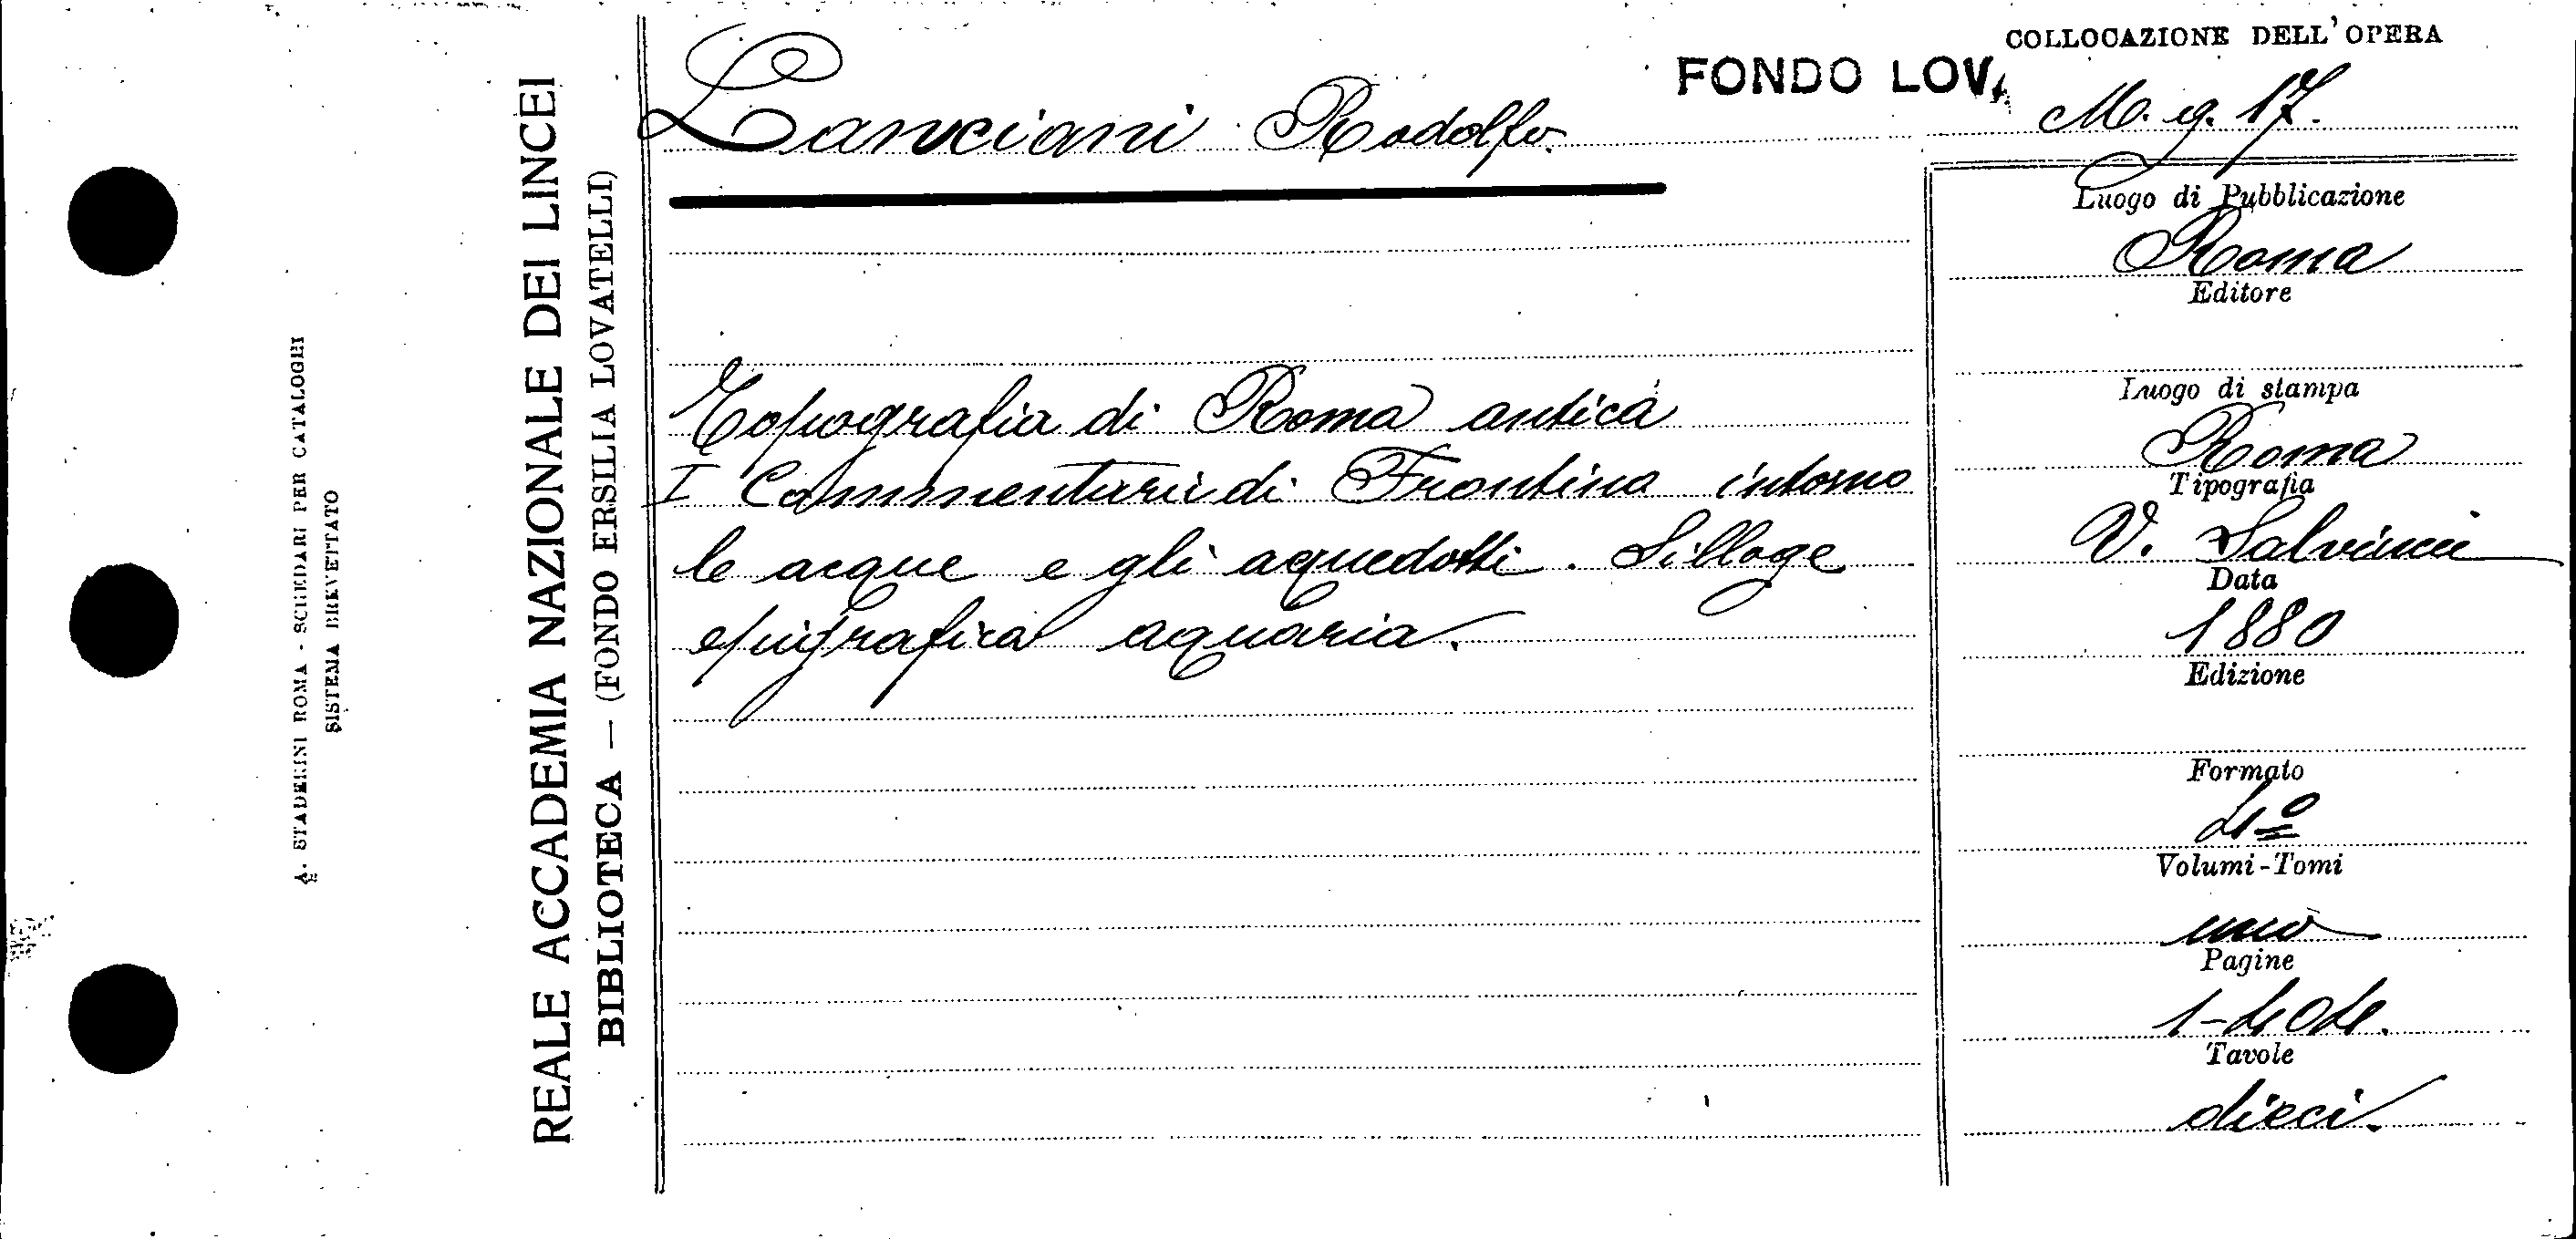 A. STADERINI ROMA - SCHEDARI PER CATALOGHI
SISTEMA BREVETTATO
REALE ACCADEMIA NAZIONALE DEI LINCEI
BIBLIOTECA — (FONDO ERSILIA LOVATELLI)
Lanciani Rodolfo.
Topografia di Roma antica
I Commentarii di Frontino intorno
le acque e gli aquedotti. Silloge
epigrafica aquaria.
COLLOCAZIONE DELL'OPERA
FONDO LOV.
M. g. 17.
Luogo di Pubblicazione
Roma
Editore
Luogo di stampa
Roma
Tipografia
V. Salviucci
Data
1880
Edizione
Formato
4º
Volumi-Tomi
uno
Pagine
1-404.
Tavole
dieci.